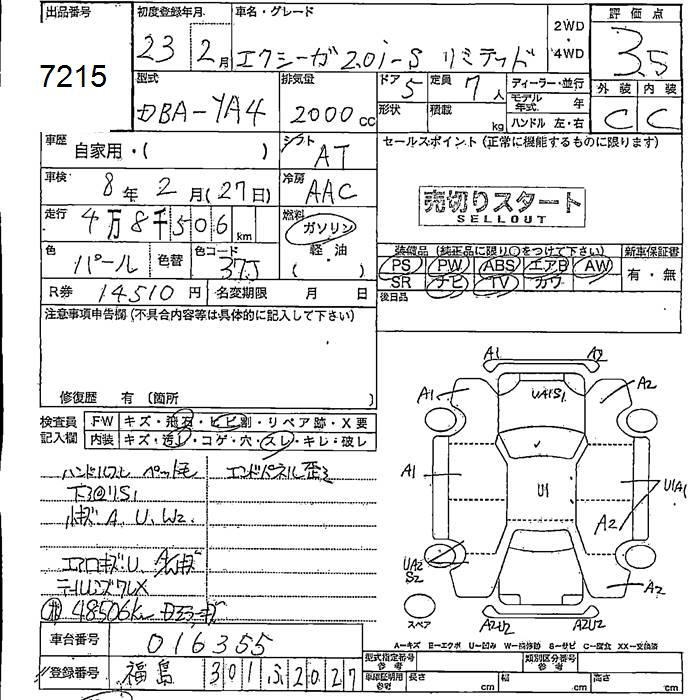 出品番号
7215
初度登録年月
23 2月
車名・グレード
エクシーガ 2.0i-S リミテッド
2WD
・
4WD
評価点
3.5
型式
DBA-YA4
排気量
2000 cc
ドア 5
定員 7人
形状
積載 kg
ディーラー・並行
モデル年式 年
ハンドル 左・右
外装 内装
C C
車歴
自家用・( )
シフト
AT
セールスポイント (正常に機能するものに限ります)
車検
8年 2月(27日)
冷房
AAC
売切りスタート
SELLOUT
走行
4万8千506km
燃料
ガソリン
軽・油
( )
色
パール
色替
色コード
37J
装備品 (純正品に限り○をつけて下さい)
新車保証書
PS PW ABS エアB AW
有・無
SR ナビ TV カワ
R券 14510円
名変期限 月 日
後日品
注意事項申告欄(不具合内容等は具体的に記入して下さい)
修復歴 有 〔箇所 〕
検査員
記入欄
FW キズ・飛石・ヒビ割・リペア跡・X要
内装 キズ・汚れ・コゲ・穴・スレ・キレ・破レ
ハンドルスレ ペット毛
エンドパネル歪ミ
下回りS1
小キズ A、U、W2、
エアロキズU、
48506km
車台番号 016355
登録番号 福島 301 ふ 2027
A1 A2
A1 UA1S1 A2
A1 U1 U1A1
A2
UA2
S2
A2
スペア A2U2 A2U2
A−キズ E−エクボ U−凹み W−補修跡 S−サビ C−腐食 XX−交換済
型式指定番号
参考
類別区分番号
参考
車庫証明用
参考
長さ cm
幅 cm
高さ cm